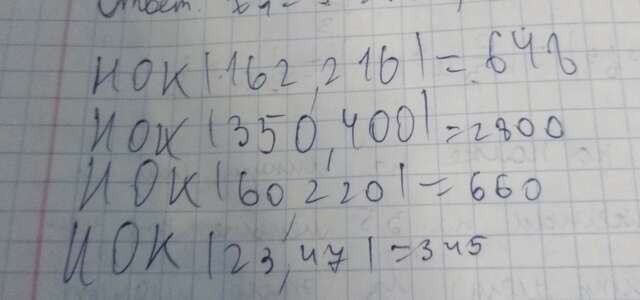 Ответ.
НОК (162, 216) = 648
НОК (350, 400) = 2800
НОК (60 220) = 660
НОК (23, 47) = 345